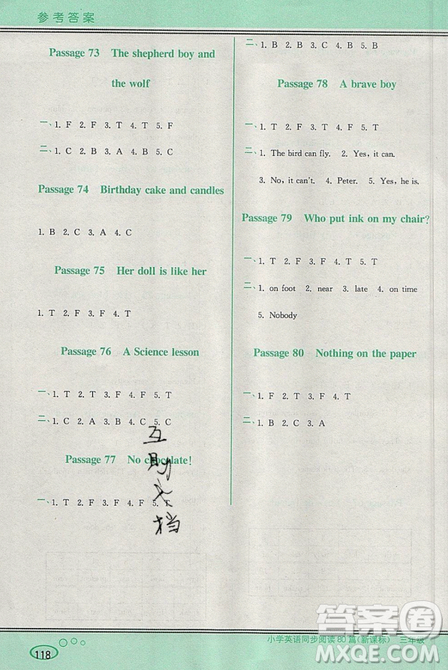 参考答案
Passage 73 The shepherd boy and
the wolf
一、1. F 2. F 3. T 4. T 5. F
二、1. C 2. B 3. A 4. B 5. C
Passage 74 Birthday cake and candles
1. B 2. C 3. A 4. C
Passage 75 Her doll is like her
1. T 2. F 3. F 4. T
Passage 76 A Science lesson
一、1. T 2. F 3. F 4. F 5. T
二、1. C 2. A 3. B 4. C 5. C
Passage 77 No chocolate!
一、1. T 2. F 3. F 4. F 5. T
互助文档
二、1. B 2. B 3. C 4. B 5. B
Passage 78 A brave boy
一、1. F 2. F 3. T 4. F 5. T
二、1. The bird can fly. 2. Yes, it can.
3. No, it can't. 4. Peter. 5. Yes, he is.
Passage 79 Who put ink on my chair?
一、1. T 2. F 3. F 4. F 5. T
二、1. on foot 2. near 3. late 4. on time
5. Nobody
Passage 80 Nothing on the paper
一、1. T 2. T 3. F 4. F 5. T
二、1. B 2. C 3. A
118
小学英语同步阅读80篇(新课标) 三年级
MXQE.COM